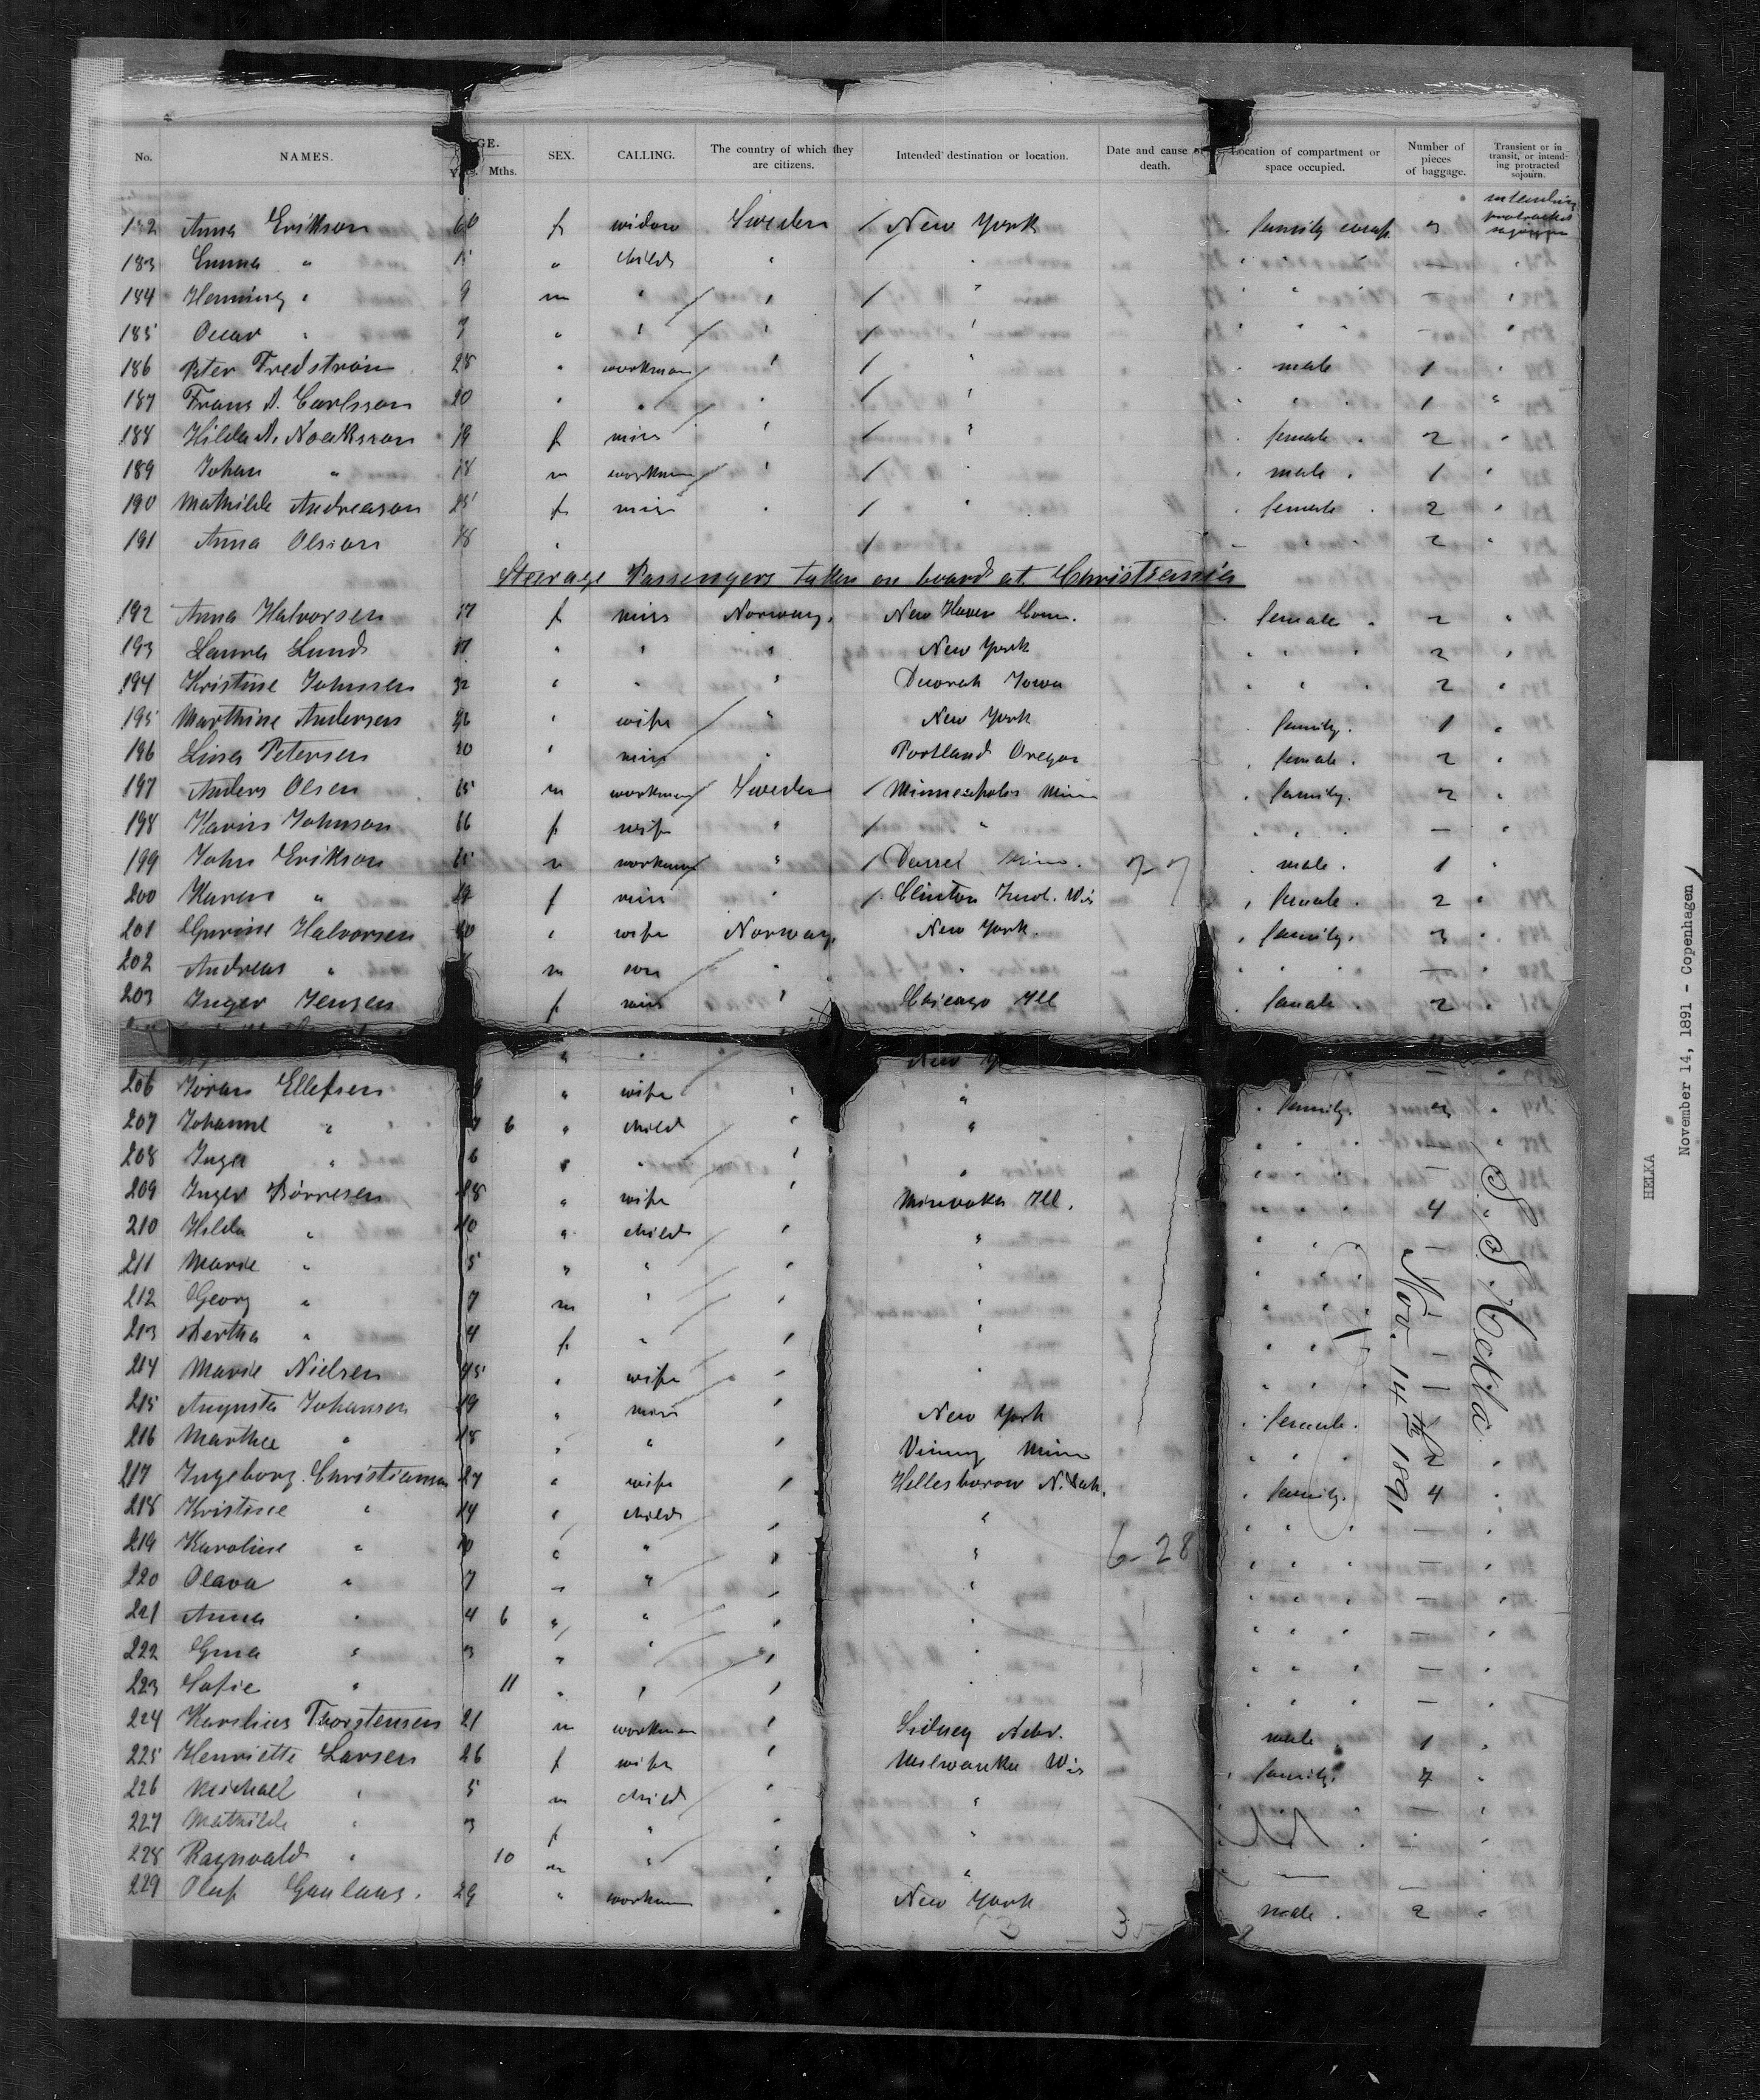 No. NAMES. AGE. Yrs. Mths. SEX. CALLING. The country of which they are citizens. Intended destination or location. Date and cause of death. Location of compartment or space occupied. Number of pieces of baggage. Transient or in transit, or intending protracted sojourn.
182 Anna Erikson 60 f widow Sweden / New York family comp. 3 intending protracted sojourn
183 Emma " " child " " " " " — "
184 Henning " 9 m " " / " " " " — "
185 Oscar " " " " / " " " " — "
186 Peter Fredström 28 " workman " / " male 1 "
187 Frans A. Carlsson 20 " " " / " " " 1 "
188 Hilda A. Noaksson 19 f miss " / " female 2 "
189 Johan " 18 m workman " / " male 1 "
190 Mathilde Andreason 25 f miss " / " female 2 "
191 Anna Olsson 18 " / " " 2 "
Steerage Passengers taken on board at Christiania
192 Anna Halvorsen 17 f miss Norway. New Haven Conn. female 2 "
193 Laura Lund 17 " " " New York " " " 2 "
194 Kristine Johnsen 32 " " " Decorah Iowa " " " 2 "
195 Marthine Andersen 26 " wife " New York family. 1 "
196 Lina Petersen 20 " miss " Portland Oregon female. 2 "
197 Anders Olsen 65 m workman Sweden / Minneapolis Minn family. 2 "
198 Karin Johnson 66 f wife " / " " " " — "
199 John Erikson m workman " / Minn. male. 1 "
200 Karen " 19 f miss " / Clinton Wis female. 2 "
201 Gurine Halvorsen " wife Norway. New York. family. 3 "
202 Andreas " m son " " " " " — "
203 Inger Jensen f miss " Chicago Ill female. 2 "
" " " New Y
206 Joran Ellefsen " wife " " family. "
207 Johanne " 6 " child " " " " " — "
208 Inger " 6 " " " " " " " — "
209 Inger Börresen 28 " wife " Minooka Ill. " " " 4 "
210 Hilda " 10 " child " " " " " —
211 Marie " 5 " " " " " " "
212 Georg " 7 m " " " " " "
213 Bertha " 4 f " " " " "
214 Marie Nielsen 45 " wife " " " " "
215 Augusta Johansen 19 " miss " New York " female.
216 Marthea " 18 " " " Vining Minn " " " 2 "
217 Ingeborg Christiansen 27 " wife " Hellesborow N. Dak. family. 4 "
218 Kristine " 14 " child " " " " " — "
219 Karoline " 10 " " " " 6-28 " " " — "
220 Olava " 7 " " " " " " " — "
221 Anna " 4 6 " " " " " " " — "
222 Gina " 3 " " " " " " " — "
223 Sofie " 11 " " " " " " " — "
224 Karelius Thorstensen 21 m workman " Sidney Nebr. male. 1 "
225 Henriette Larsen 26 f wife " Milwaukee Wis family. 4 "
226 Michael " 5 m child " " — "
227 Mathilde " 3 f " " " "
228 Ragnvald " 10 m " " " —
229 Oluf Gaulaas. 29 " workman " New York male. 2 "
S.S. Hekla.
Nov. 14th 1891
HELKA
November 14, 1891 - Copenhagen